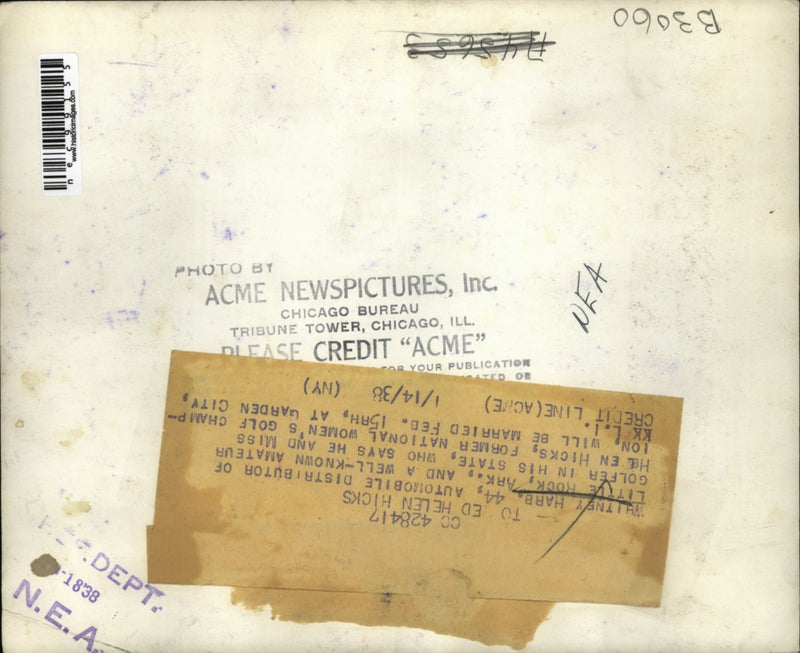 B3060
A45653
necn9155
www.historicimages.com
PHOTO BY
ACME NEWSPICTURES, Inc.
CHICAGO BUREAU
TRIBUNE TOWER, CHICAGO, ILL.
PLEASE CREDIT "ACME"
FOR YOUR PUBLICATION
OR
NEA
CG 428417
TO ED HELEN HICKS
WHITNEY HARB, 44, AUTOMOBILE DISTRIBUTOR OF
LITTLE ROCK, ARK., AND A WELL-KNOWN AMATEUR
GOLFER IN HIS STATE, WHO SAYS HE AND MISS
HELEN HICKS, FORMER NATIONAL WOMEN'S GOLF CHAMP-
ION, WILL BE MARRIED FEB. 15RH, AT GARDEN CITY,
KK L.I.
CREDIT LINE(ACME) 1/14/38 (NY)
DEPT.
1838
N.E.A.